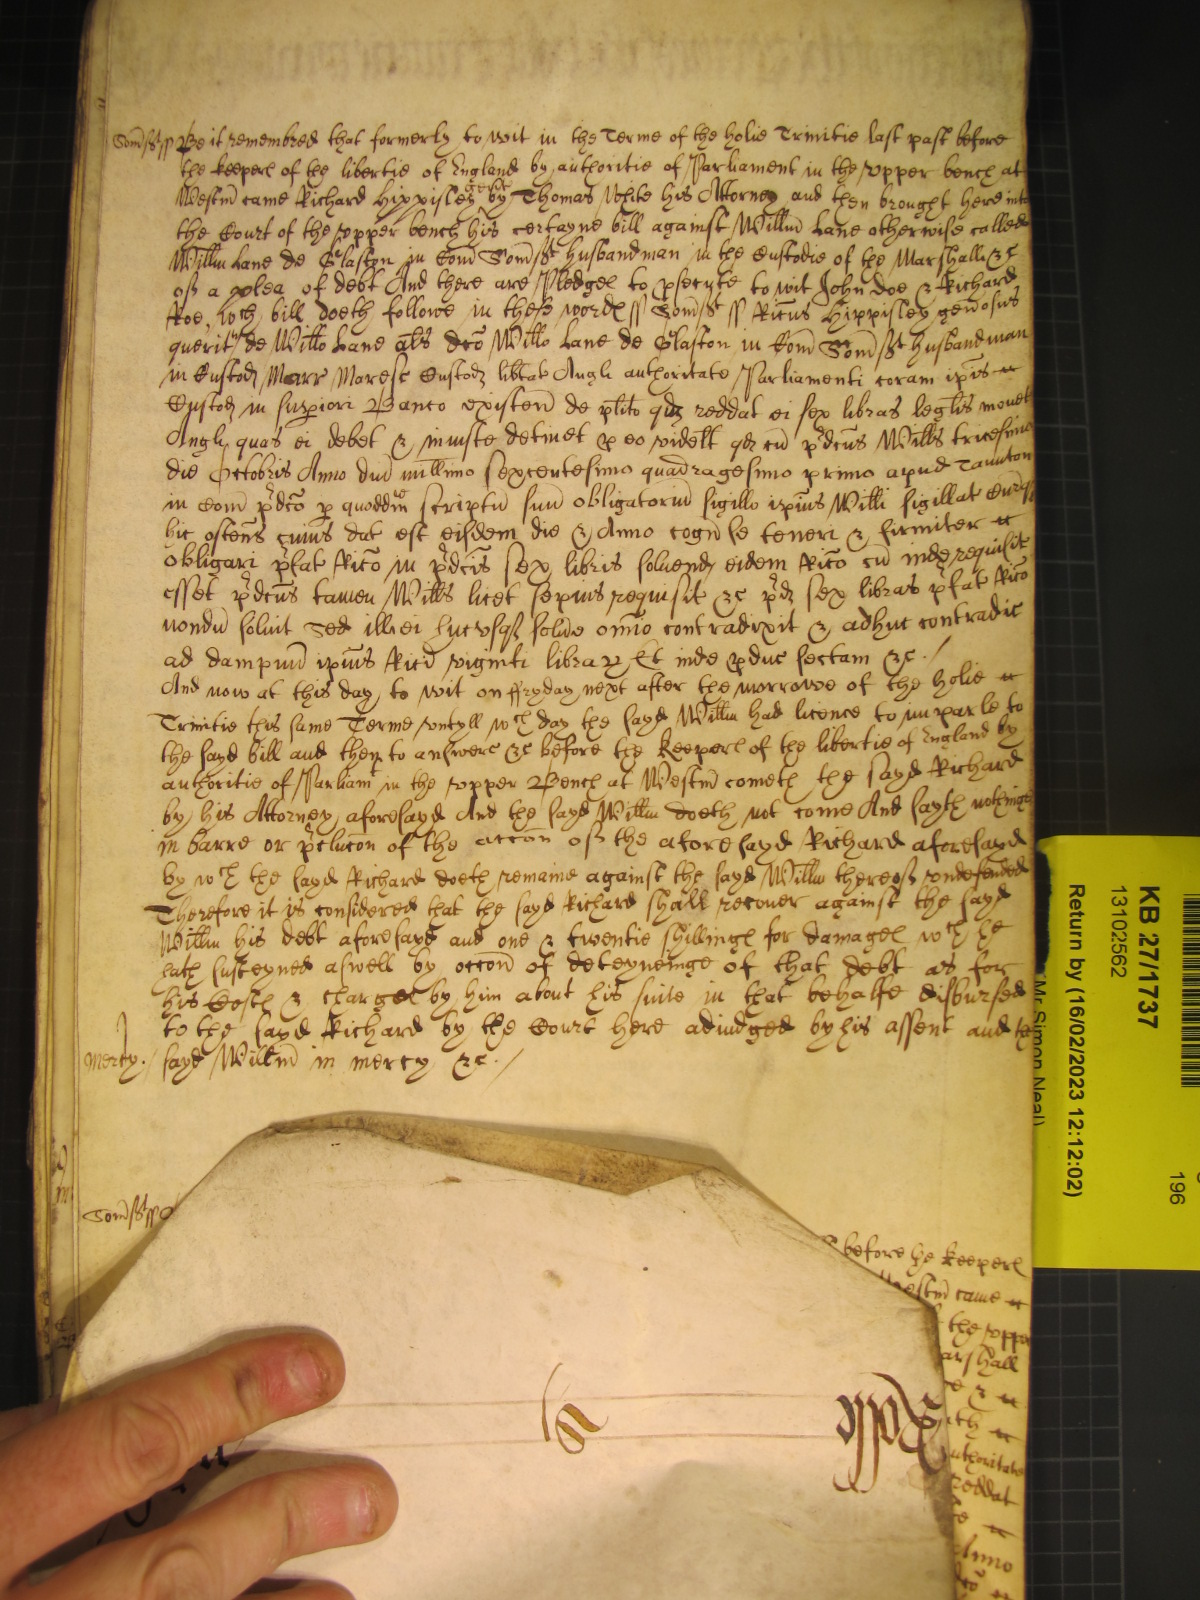 Som̃s̃t ss Be it remembred that formerly to wit in the Terme of the holie Trinitie last past before
the keepers of the libertie of England by authoritie of Parliament in the vpper bench at
Westm̃ came Richard Hippisley gent by Thomas White his Attorney and then brought here into
the Court of the vpper bench his certayne bill against Willm̃ Lane otherwise called
Willm̃ Lane de Glaston in Com̃ Som̃s̃t husbandman in the Custodie of the Marshall &c
of a plea of debt And there are Pledges to p̲secute to wit John Doe & Richard
Roe, wch bill doeth followe in these words ss Som̃s̃t ss Ric̃us Hippisley geñosus
querit̃ de Willo Lane al̃s dc̃o Willo Lane de Glaston in Com̃ Som̃s̃t husbandman
in Custod̃ Marr̃ Maresc̃ Custod̃ lib̃tat̃ Angl̃ authoritate Parliamenti coram ip̃is
Custod̃ in sup̲iori Banco existen̄ de pl̃ito qd̃ reddat ei sex libras leg̃lis monet̃
Angl̃ quas ei debet & iniuste detinet p̲ eo videl̃t qd̃ cū p̃dcũs Wills̃ tricesimo
die Octobris Anno dñi millimo sexcentesimo quadragesimo primo apud Taunton
in Com̃ p̃dcõ p̲ quoddm̃ scriptū suū obligatoriū sigillo ip̃ius Willi sigillat̃ Cur̃q̃
hic ostens̃ cuius dat̃ est eisdem die & Anno cogñ se teneri & firmiter
obligari p̃fat̃ Ric̃o in p̃dcĩs sex libris solvend̃ eidem Ric̃o cū inde requisit̃
esset p̃dcũs tamen Wills̃ licet sepius requisit̃ &c p̃d̃ sex libras p̃fat̃ Ric̃o
nondū soluit Sed ill̃ ei hucvsq̃ solṽe om̃io contradixit & adhuc contradic̃
ad dampnū ip̃ius Ric̃i viginti librar̃ Et inde p̲duc̃ sectam &c. /
And now at this day to wit on ffryday next after the morrowe of the holie
Trinitie this same Terme vntyll wch day the sayd Willm̃ had licence to imparle to
the sayd bill and then to answere &c before the Keepers of the libertie of England by
authoritie of Parliamt in the vpper Bench at Westm̃ cometh the sayd Richard
by his Attorney aforesayd And the sayd Willm̃ doeth not come And sayth nothinge
in barre or p̃clucõn of the accõn of the aforesayd Richard aforesayd
by wch the sayd Richard doeth remaine against the sayd Willm̃ thereof vndefended
Therefore it is considered that the sayd Richard shall recouer against the sayd
Willm̃ his debt aforesayd and one & twentie shillings for damages wch he
hath susteyned aswell by occõn of deteyneinge of that debt as for
his Costs & charges by him about his suite in that behalfe disbursed
to the sayd Richard by the Court here adiudged by his assent and the
Mercy. / sayd Willm̃ in mercy &c. /
Som̃s̃t ss
before the keepers
Westm̃ came
the vpper
arshall
&
th
authoritate
reddat
Anno
KB 27/1737
13102562
Return by (16/02/2023 12:12:02)
Mr Simon Neal)
196